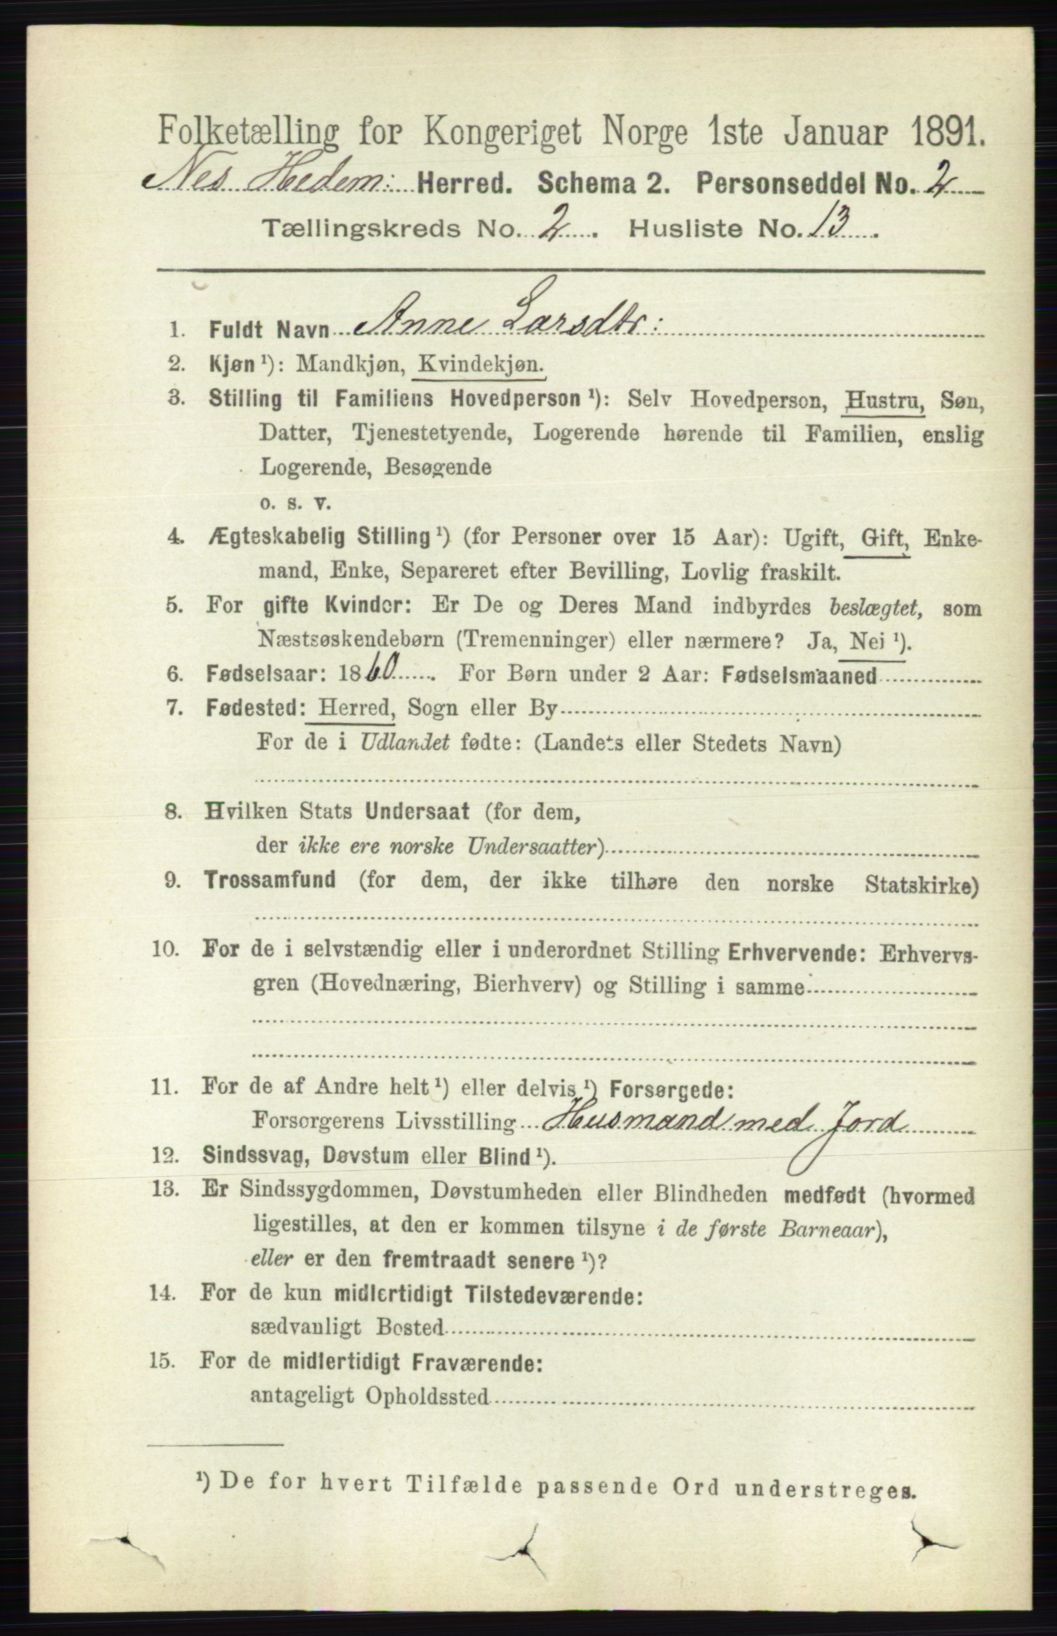 Folketælling for Kongeriget Norge 1ste Januar 1891.
Nes Hedem: Herred. Schema 2. Personseddel No. 2
Tællingskreds No. 2. Husliste No. 13.
1. Fuldt Navn Anne Larsdtr:
2. Kjøn ¹): Mandkjøn, Kvindekjøn.
3. Stilling til Familiens Hovedperson ¹): Selv Hovedperson, Hustru, Søn,
Datter, Tjenestetyende, Logerende hørende til Familien, enslig
Logerende, Besøgende
o. s. v.
4. Ægteskabelig Stilling ¹) (for Personer over 15 Aar): Ugift, Gift, Enke-
mand, Enke, Separeret efter Bevilling, Lovlig fraskilt.
5. For gifte Kvinder: Er De og Deres Mand indbyrdes beslægtet, som
Næstsøskendebørn (Tremenninger) eller nærmere? Ja, Nei ¹).
6. Fødselsaar: 1860. For Børn under 2 Aar: Fødselsmaaned
7. Fødested: Herred, Sogn eller By
For de i Udlandet fødte: (Landets eller Stedets Navn)
8. Hvilken Stats Undersaat (for dem,
der ikke ere norske Undersaatter)
9. Trossamfund (for dem, der ikke tilhøre den norske Statskirke)
10. For de i selvstændig eller i underordnet Stilling Erhvervende: Erhvervs-
gren (Hovednæring, Bierhverv) og Stilling i samme
11. For de af Andre helt ¹) eller delvis ¹) Forsørgede:
Forsørgerens Livsstilling Husmand med Jord
12. Sindssvag, Døvstum eller Blind ¹).
13. Er Sindssygdommen, Døvstumheden eller Blindheden medfødt (hvormed
ligestilles, at den er kommen tilsyne i de første Barneaar),
eller er den fremtraadt senere ¹)?
14. For de kun midlertidigt Tilstedeværende:
sædvanligt Bosted
15. For de midlertidigt Fraværende:
antageligt Opholdssted
¹) De for hvert Tilfælde passende Ord understreges.